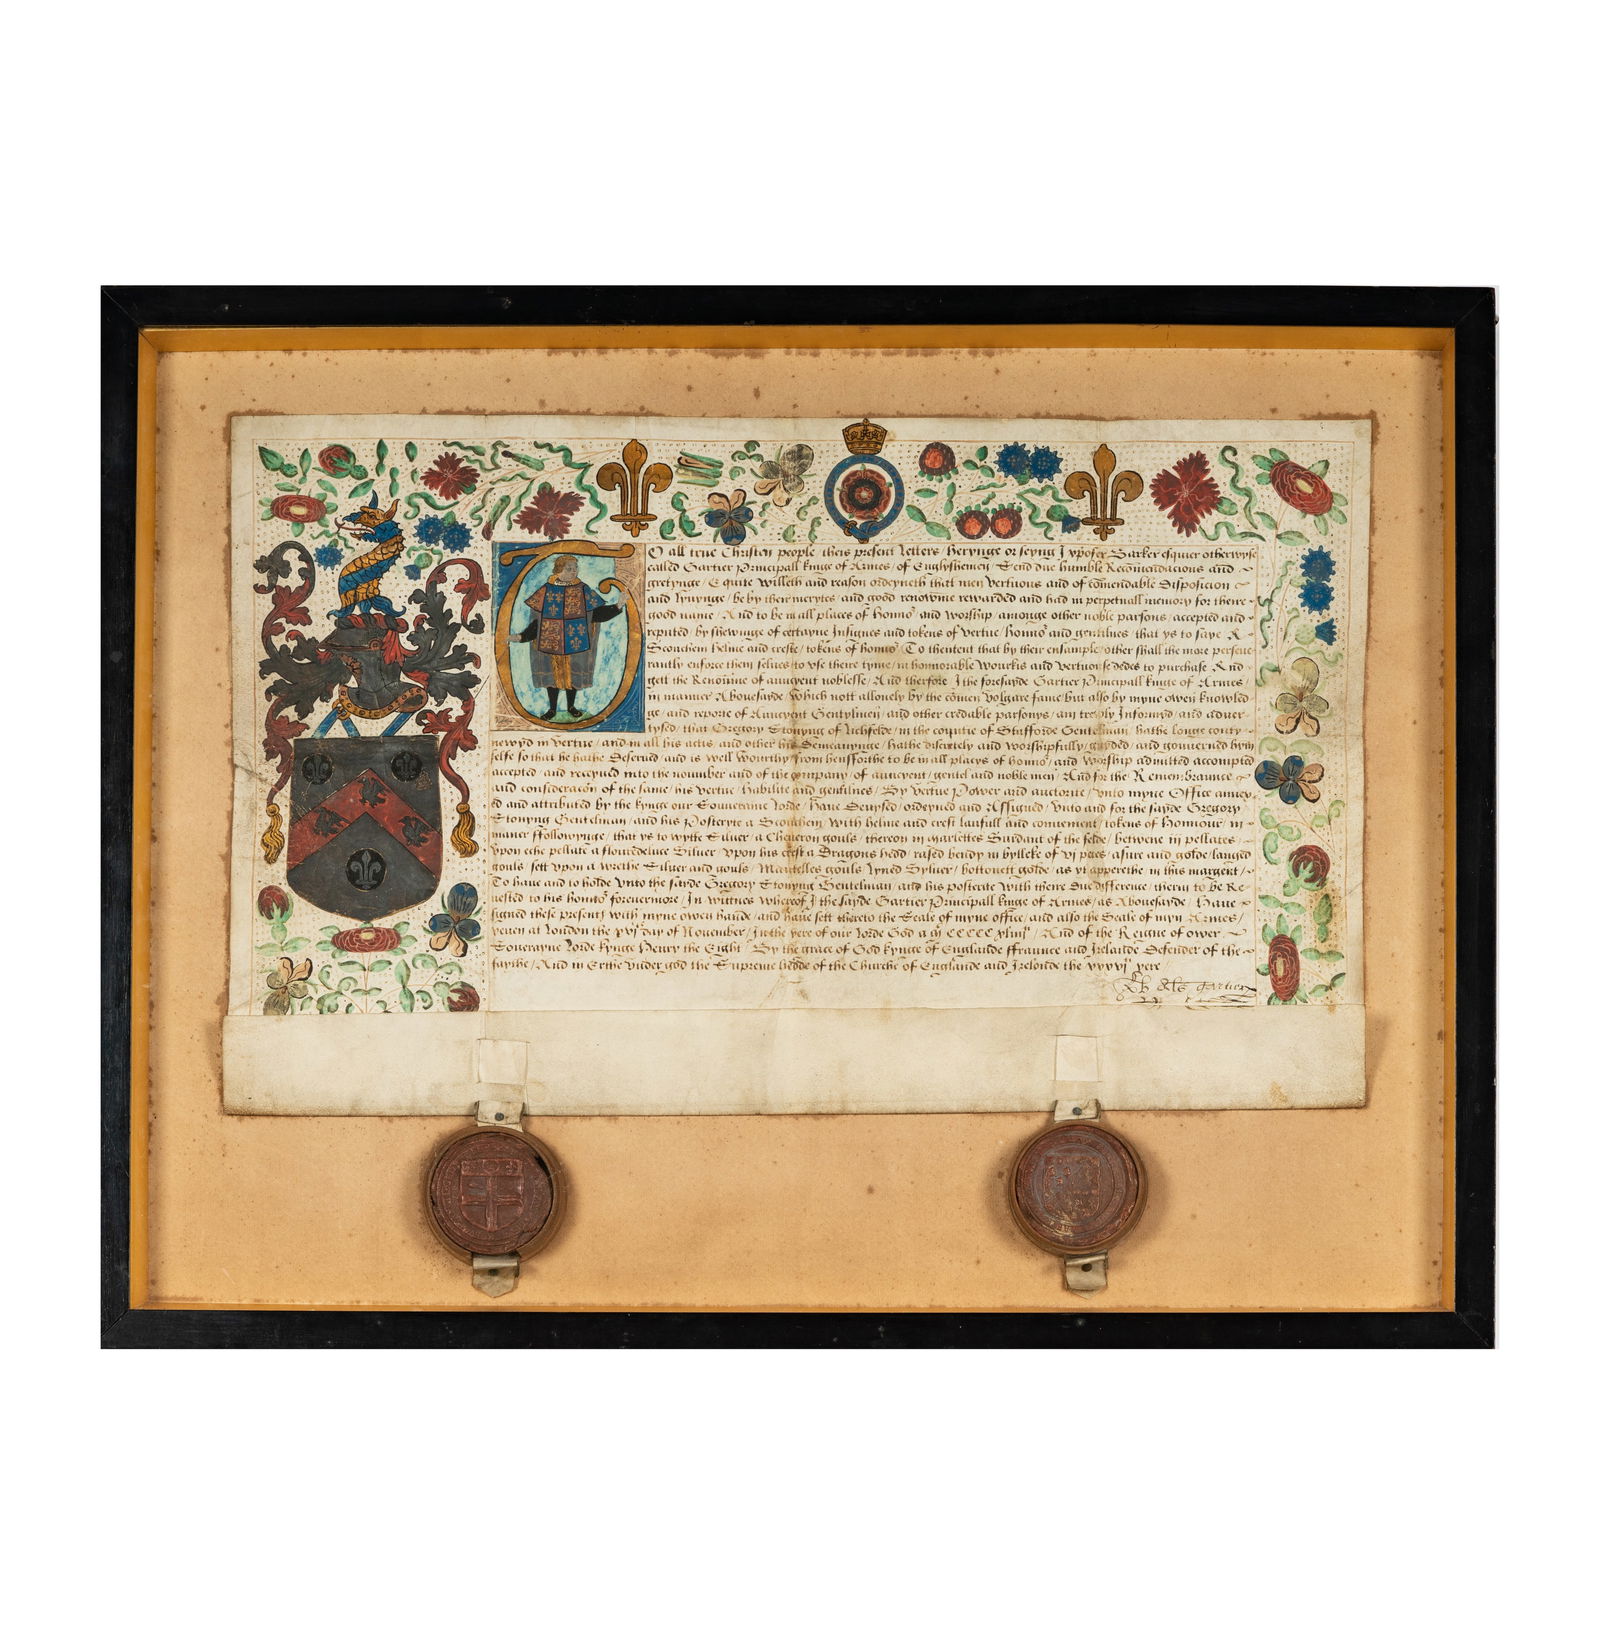 To all true Christen people theis present letters herynge or seyng I xpofer Barker esquier otherwyse
called Gartier principall kinge of Armes / of Englyshemen / Send due humble Recomendacions and
gretynge / Equite willeth and reason ordeyneth that men vertuous and of comendable Disposicion
and lyuynge / be by their merytes and good renowne rewarded and had in perpetuall memory for theire
good name / And to be in all places of honnor and worship amonge other noble parsons accepted and
reputed by shewinge of certayne Insignes and tokens of vertue / honnor and gentilnes / that ys to saye A
Scoachem helme and creste / tokens of honnor / To thentent that by their ensample other shall the more perseue
rantly enforce them selues to vse theire tyme / in honnorable wourkis and vertuouse dedes to purchase And
gett the Renowne of auncyent noblesse / And therfore I the foresayde Gartier Principall kinge of Armes
in manner Abouesayde which nott allonely by the comen volgare fame but also by myne owen knowled
ge / and reporte of Auncyent Gentylmen and other credable parsonys / am treuly Informyd and aduer
tysed / that Gregory Stonyng of lichfelde / in the countie of Stafforde Gentelman / hathe longe conty
newyd in vertue / and in all his actis and other his Demeanynge / hathe discretely and worshipfully guyded / and gouuerned hym
selfe so that he hathe Deserued / and is well wourthy from hensforthe to be in all placys of honnor / and worship admitted accompted
accepted and receyued into the nowmber and of the company of auncyent / gentel and noble men And for the Remembraunce
and consideracon of the same / his vertue / habilite and gentilnes / By vertue Power and auctorite / vnto myne Office annex
ed and attributed by the kynge our Souueraine lorde / haue Deuysed / ordeyned and Assigned / vnto and for the sayde Gregory
Stonyng Gentelman / and his Posteryte a Scoachem with helme and crest laufull and conuenient / tokens of Honnour in
maner ffollowynge / that ys to wytte Siluer / a Cheueron gouls / thereon iij Marlettes Surdant of the felde / betwene iij pellates
vpon eche pellate a flouredeluce Siluer / vpon his crest a Dragons hedd / rased bendy in bylleke of vj peces / asure and golde / langed
gouls sett vpon a wrethe Siluer and gouls / Mantelles gouls lyned Syluer / bottonett golde / as yt apperithe in this margent /
To haue and to holde vnto the sayde Gregory Stonyng Gentelman and his posterite with theire due difference / therin to be Re
uested to his honnor foreuermore / In wittnes wherof I the sayde Gartier Principall kinge of Armes / as Abouesayde / haue
signed these presents with myne owen hande / and haue sett thereto the Seale of myne office / and also the Seale of myn Armes /
yeuen at London the xvj day of Nouember / In the yere of our lorde God a m CCCCC xliiij / And of the Reigne of ower
Souerayne lorde kynge Henry the Eight / By the grace of God kynge of Englande ffraunce and Irelande Defender of the
faythe / And in Erthe vnder god the Supreme hedde of the Churche of Englande and Irelonde the xxxvj yere
als Gartier